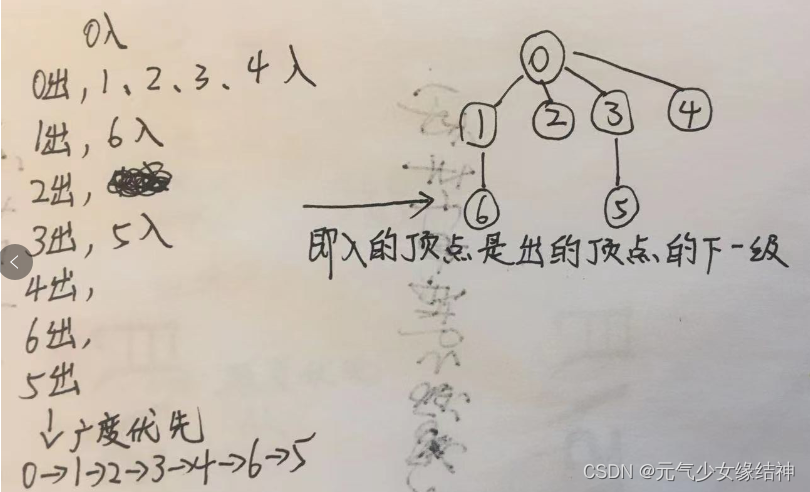 0入
0出,1、2、3、4入
1出,6入
2出,
3出,5入
4出,
6出,
5出
↓广度优先
0→1→2→3→4→6→5
0
1 2 3 4
6 5
即入的顶点是出的顶点的下一级
CSDN @元气少女缘结神